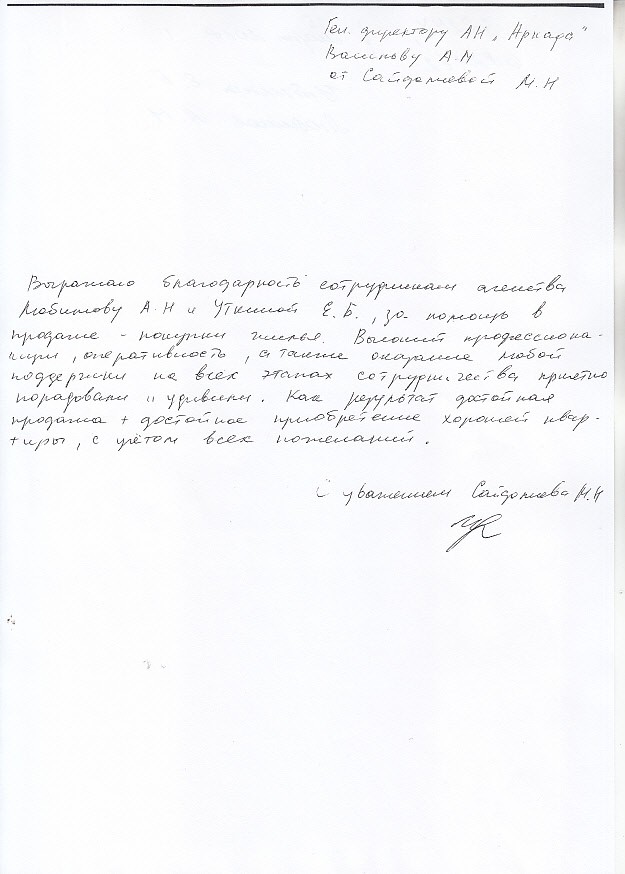 Ген. директору АН „Аркада“
А.М
от Сайдашевой М.Н
Выражаю благодарность сотрудникам агенства
Любимову А.Н и Уткиной Е.Б., за помощь в
продаже - покупки жилья. Высокий профессиона-
лизм, оперативность, а также оказание любой
поддержки на всех этапах сотрудничества приятно
порадовали и удивили. Как результат достойная
продажа + достойное приобретение хорошей квар-
тиры, с учётом всех пожеланий.
С уважением Сайдашева М.Н